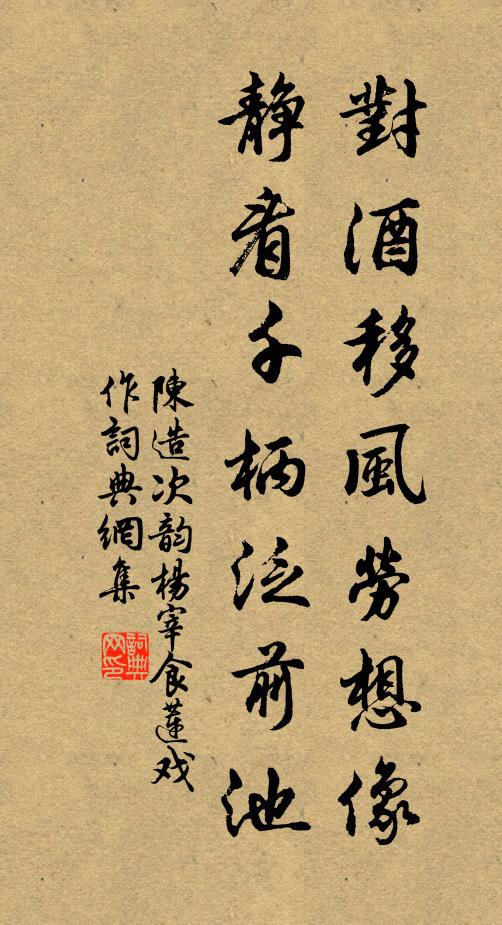 對酒移風勞想像
靜看千柄泛前池
陳造次韵楊宰食蓮戏
作詞典網集
詞典网印